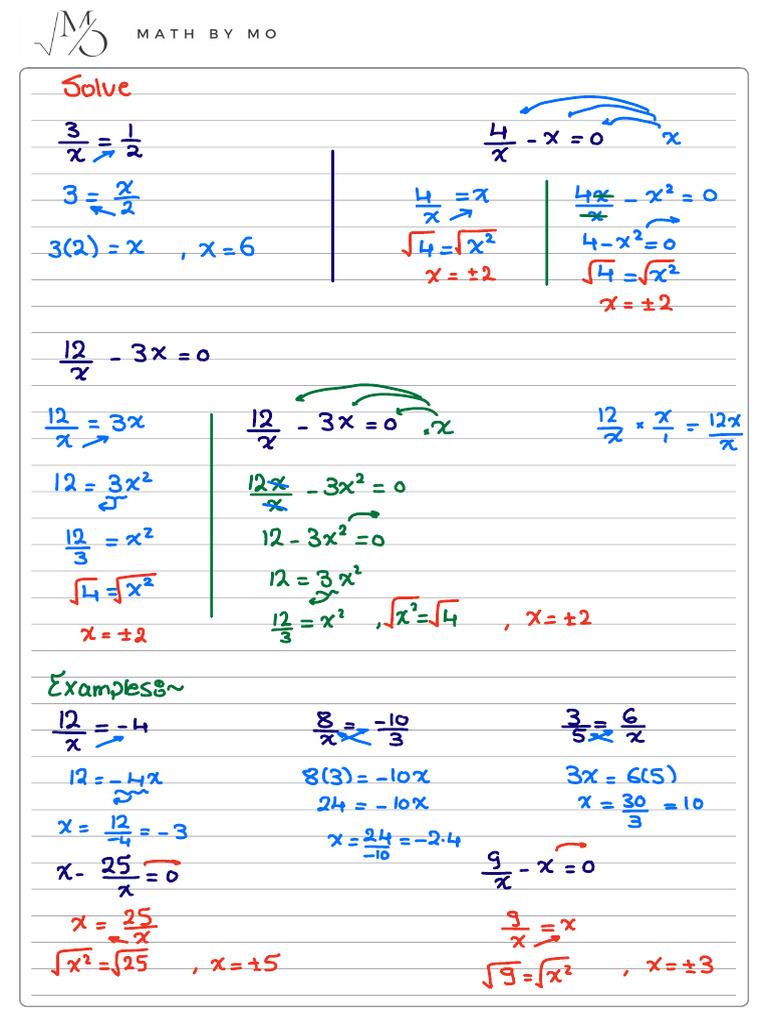 √MO MATH BY MO
Solve
3/x = 1/2
3 = x/2
3(2) = x , x = 6
4/x - x = 0 x
4/x = x
√4 = √x²
x = ±2
4x/x - x² = 0
4 - x² = 0
√4 = √x²
x = ±2
12/x - 3x = 0
12/x = 3x
12 = 3x²
12/3 = x²
√4 = √x²
x = ±2
12/x - 3x = 0 .x
12x/x - 3x² = 0
12 - 3x² = 0
12 = 3x²
12/3 = x² , √x² = √4 , x = ±2
12/x × x/1 = 12x/x
Examples:~
12/x = -4
12 = -4x
x = 12/-4 = -3
8/x = -10/3
8(3) = -10x
24 = -10x
x = 24/-10 = -2.4
3/5 = 6/x
3x = 6(5)
x = 30/3 = 10
x - 25/x = 0
x = 25/x
√x² = √25 , x = ±5
9/x - x = 0
9/x = x
√9 = √x² , x = ±3